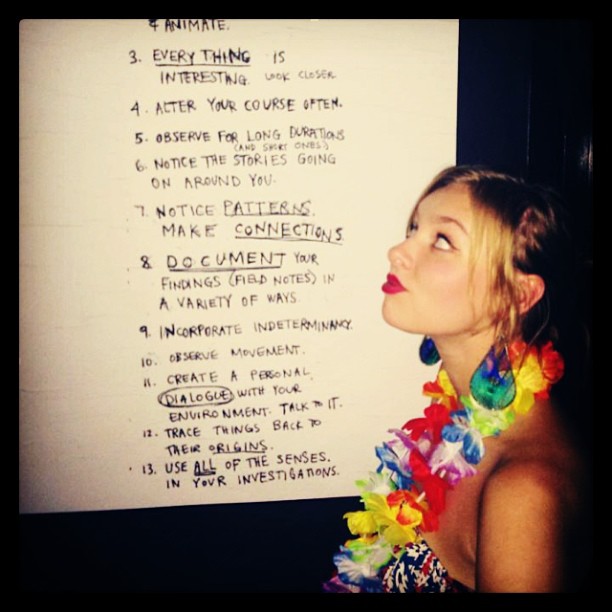 & ANIMATE.
3. EVERYTHING IS
INTERESTING. LOOK CLOSER.
4. ALTER YOUR COURSE OFTEN.
5. OBSERVE FOR LONG DURATIONS
(AND SHORT ONES)
6. NOTICE THE STORIES GOING
ON AROUND YOU.
7. NOTICE PATTERNS.
MAKE CONNECTIONS.
8. DOCUMENT YOUR
FINDINGS (FIELD NOTES) IN
A VARIETY OF WAYS
9. INCORPORATE INDETERMINANCY.
10. OBSERVE MOVEMENT.
11. CREATE A PERSONAL
DIALOGUE WITH YOUR
ENVIRONMENT. TALK TO IT.
12. TRACE THINGS BACK TO
THEIR ORIGINS.
13. USE ALL OF THE SENSES.
IN YOUR INVESTIGATIONS.